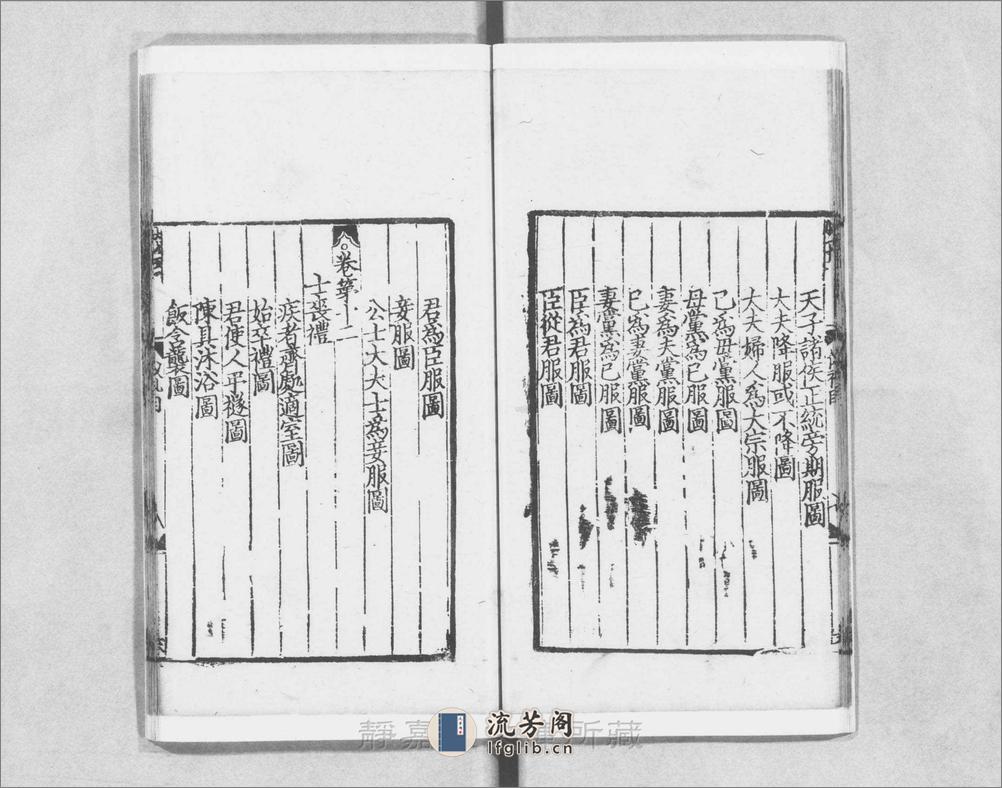 天子諸侯正統旁期服圖
大夫降服或不降圖
大夫婦人爲大宗服圖
己爲母黨服圖
母黨爲己服圖
妻爲夫黨服圖
己爲妻黨服圖
妻黨爲己服圖
臣爲君服圖
臣從君服圖
君爲臣服圖
妾服圖
公士大夫士爲妾服圖
卷第十二
士喪禮
疾者齊處適室圖
始卒禮圖
君使人弔襚圖
陳具沐浴圖
飯含襲圖
靜嘉所藏
流芳阁
lfglib.cn